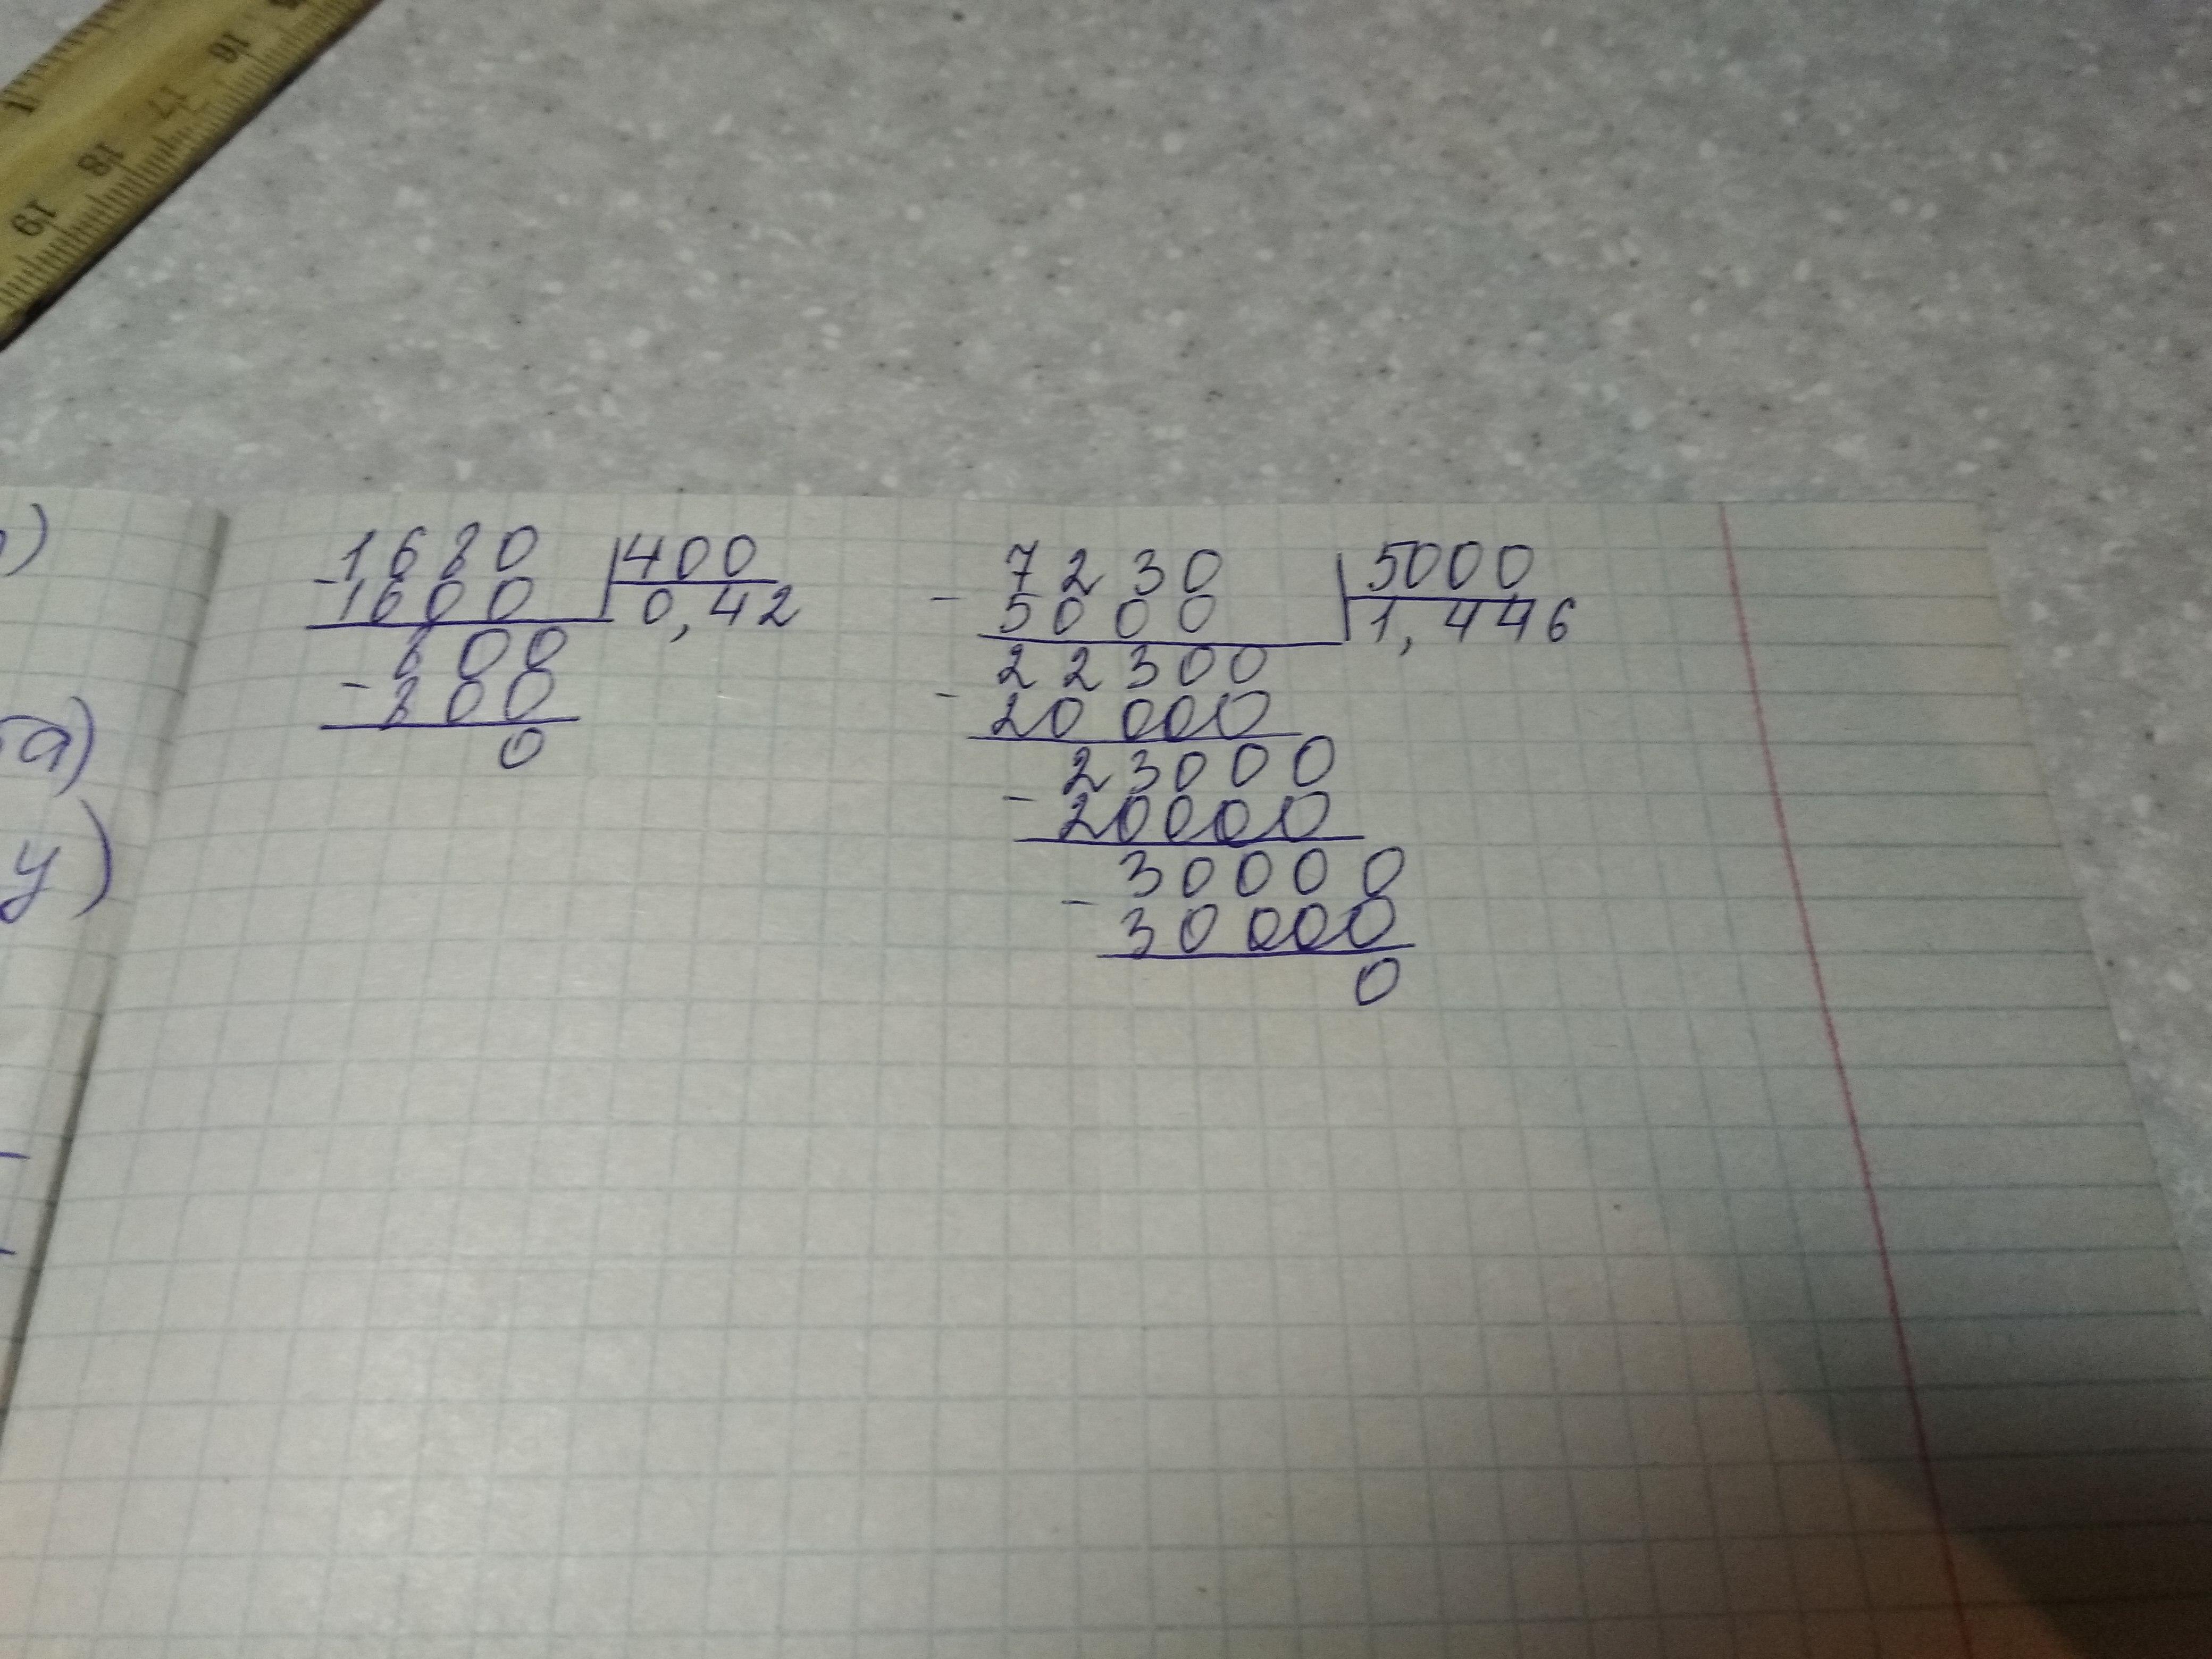 16
17
18
19
)
а)
у)
1680 400
- 1600 0,42
800
- 800
0
7230 5000
- 5000 1,446
22300
- 20000
23000
- 20000
30000
- 30000
0